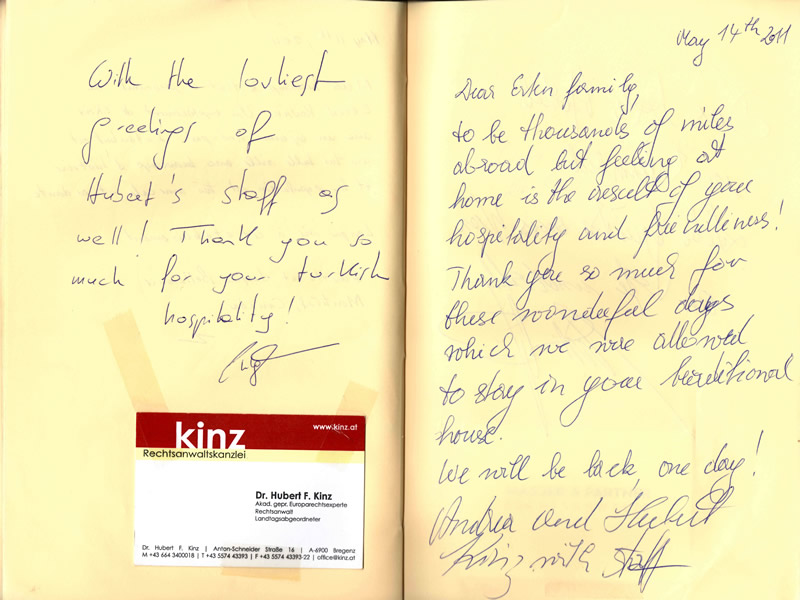 With the lovliest
greetings of
Hubert's staff as
well! Thank you so
much for your turkish
hospitality!
kinz
www.kinz.at
Rechtsanwaltskanzlei
Dr. Hubert F. Kinz
Akad. gepr. Europarechtsexperte
Rechtsanwalt
Landtagsabgeordneter
Dr. Hubert F. Kinz | Anton-Schneider Straße 16 | A-6900 Bregenz
M +43 664 3400018 | T +43 5574 43393 | F +43 5574 43393-22 | office@kinz.at
May 14th 2011
Dear Erkn family,
to be thousands of miles
abroad but feeling at
home is the result of your
hospitality and friendliness!
Thank you so much for
these wonderful days
which we were allowed
to stay in your traditional
house.
We will be back, one day!
Andrea and Hubert
Kinz with staff